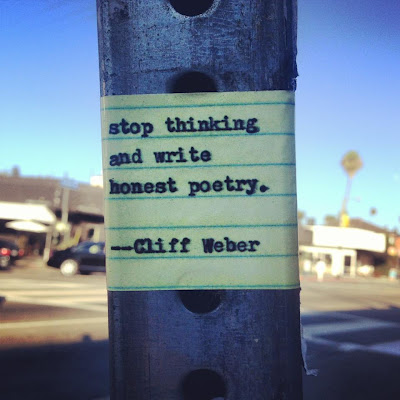 stop thinking
and write
honest poetry.
--Cliff Weber